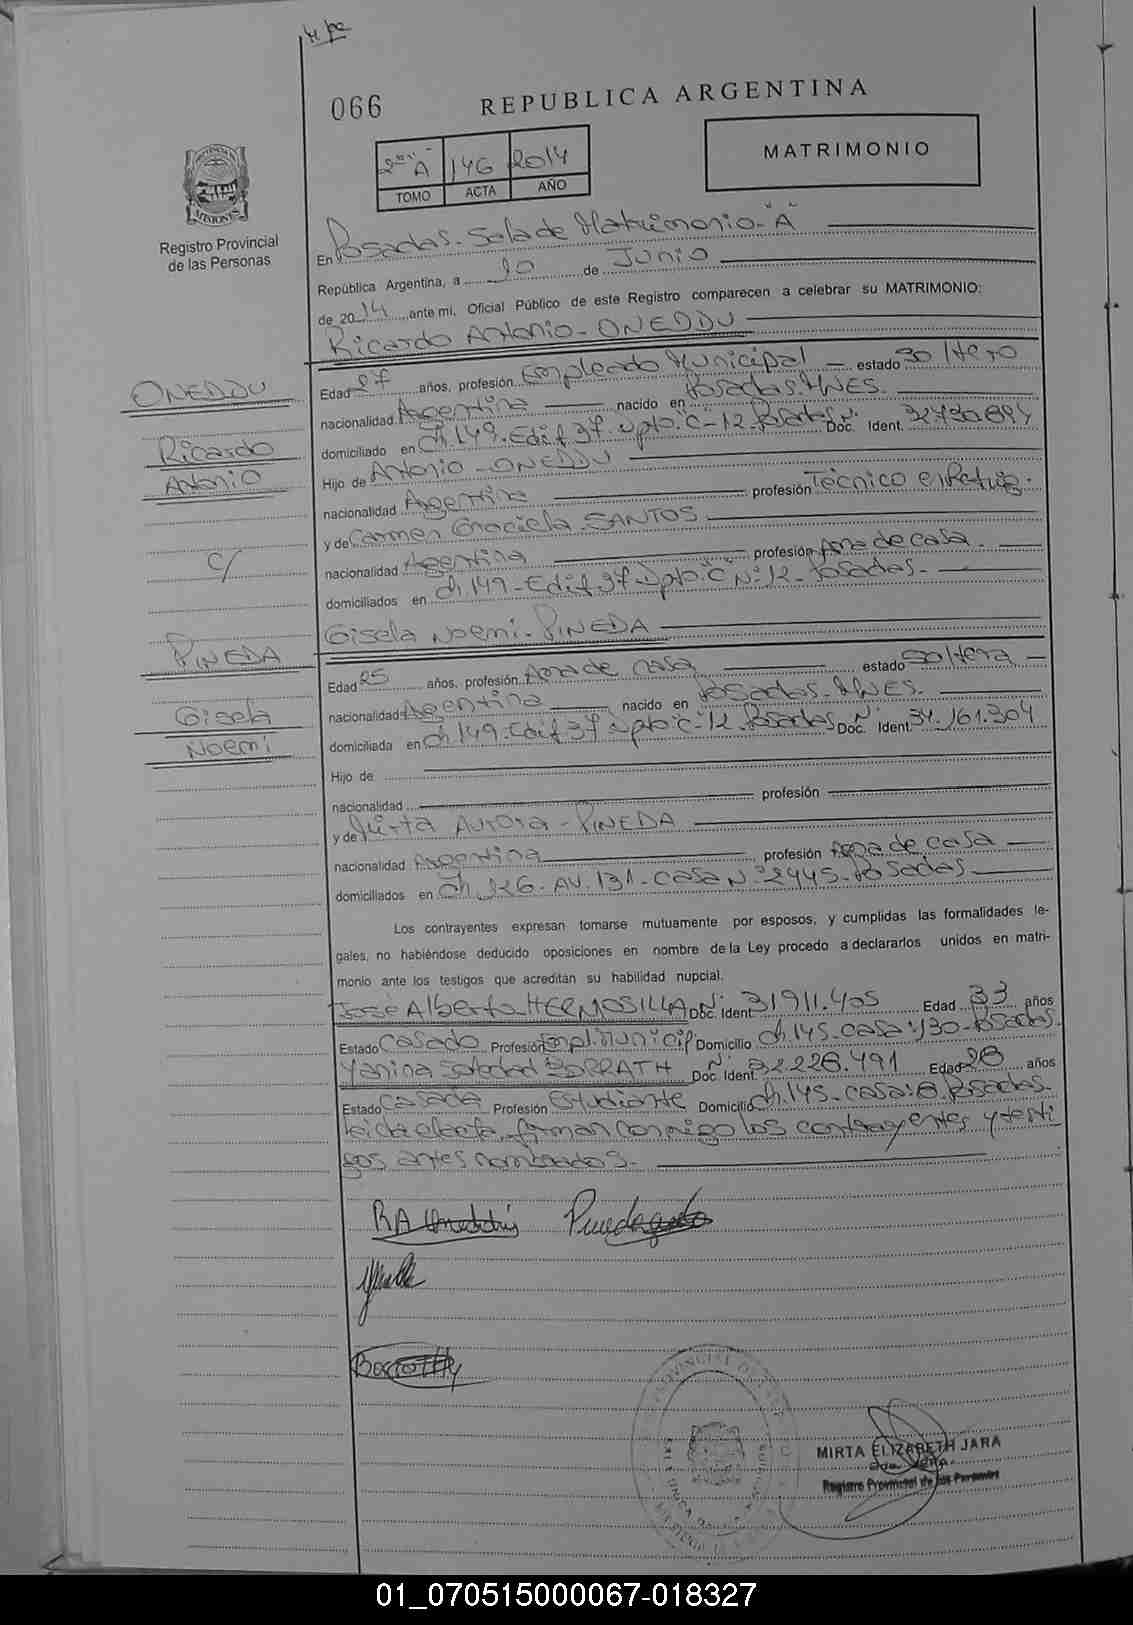 066 REPUBLICA ARGENTINA
2º "A" 146 2014
TOMO ACTA AÑO
MATRIMONIO
Registro Provincial
de las Personas
En Posadas-Sala de Matrimonio-"A"
República Argentina, a 20 de Junio
de 2014 ante mí, Oficial Público de este Registro comparecen a celebrar su MATRIMONIO:
Ricardo Antonio-ONEDDU
ONEDDU
Ricardo
Antonio
c/
PINEDA
Gisela
Noemi
Edad 27 años, profesión Empleado Municipal estado Soltero
nacionalidad Argentina nacido en Posadas-MNES.
domiciliado en Ch.149-Edif.37-Dpto."C"-12-Posadas Doc. Nº Ident. 32.730.894
Hijo de Antonio-ONEDDU
nacionalidad Argentina profesión Técnico en Refrig.
y de Carmen Graciela SANTOS
nacionalidad Argentina profesión Ama de casa.
domiciliados en Ch.149-Edif.37-Dpto."C" Nº12-Posadas.
Gisela Noemi-PINEDA
Edad 25 años, profesión Ama de casa estado Soltera
nacionalidad Argentina nacido en Posadas-MNES.
domiciliada en Ch.149-Edif.37-Dpto"C"-12-Posadas Doc. Nº Ident. 34.161.304
Hijo de
nacionalidad profesión
y de Mirta Aurora-PINEDA
nacionalidad Argentina profesión Ama de casa
domiciliados en Ch.126-AV.131-Casa Nº2445-Posadas
Los contrayentes expresan tomarse mutuamente por esposos, y cumplidas las formalidades le-
gales, no habiéndose deducido oposiciones en nombre de la Ley procedo a declararlos unidos en matri-
monio ante los testigos que acreditan su habilidad nupcial.
José Alberto-HERMOSILLA Doc. Nº Ident. 31.911.405 Edad 33 años
Estado Casado Profesión Empl. Municip Domicilio Ch.145-casa:130-Posadas.
Yanina Soledad Doc. Nº Ident. 32.226.491 Edad 28 años
Estado Casada Profesión Estudiante Domicilio Ch.145-casa:8-Posadas.
leida el acta, firman conmigo los contrayentes y testi
gos antes nombrados.
RA Oneddu
MIRTA ELIZABETH JARA
Registro Provincial de las Personas
01_070515000067-018327